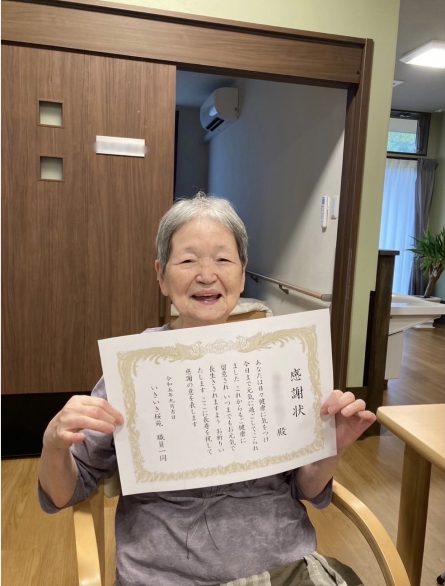 感謝状
殿
あなたは日々健康に気をつけ
今日まで元気に過ごしてこられ
ました これからもご健康に
留意され いつまでもお元気で
長生きされますよう お祈りい
たします ここに長寿を祝して
感謝の意を表します
令和五年九月吉日
いきいき桜苑 職員一同